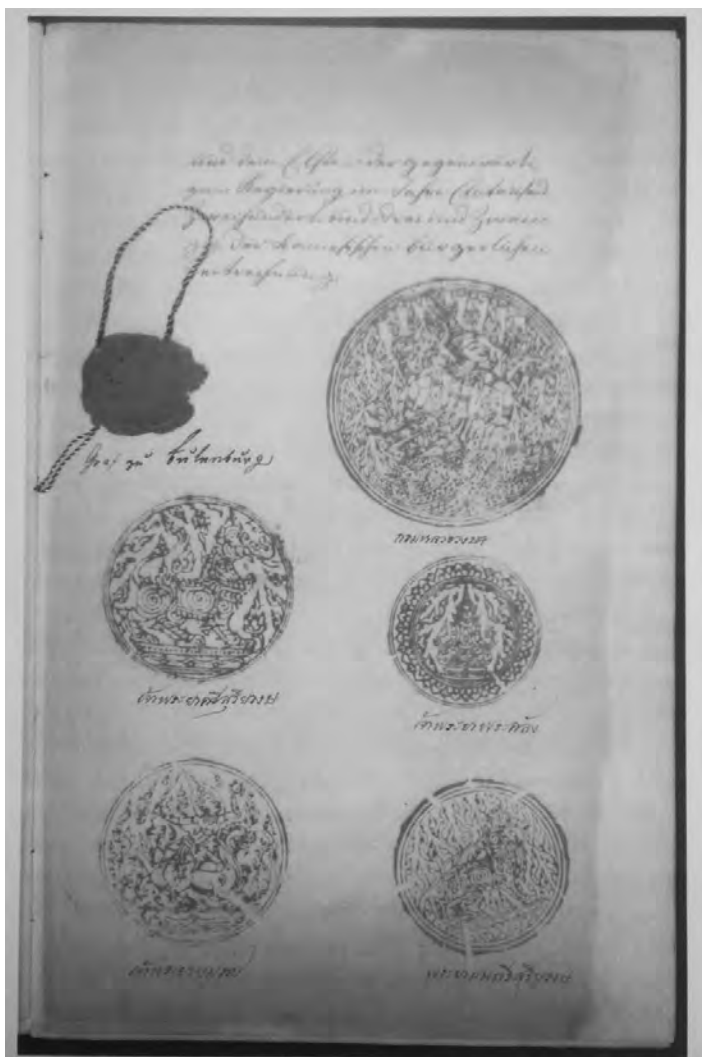 und dem Elften der gegenwärti
gen Regierung im Jahre Eintausend
zweihundert und drei und zwan
zig der Siamesischen bürgerlichen
Zeitrechnung.
Graf zu Eulenburg
กรมหลวงวงษา
เจ้าพระยาศรีสุริยวงษ
เจ้าพระยาพระคลัง
เจ้าพระยายมราช
พระยามนตรีสุริยวงษ